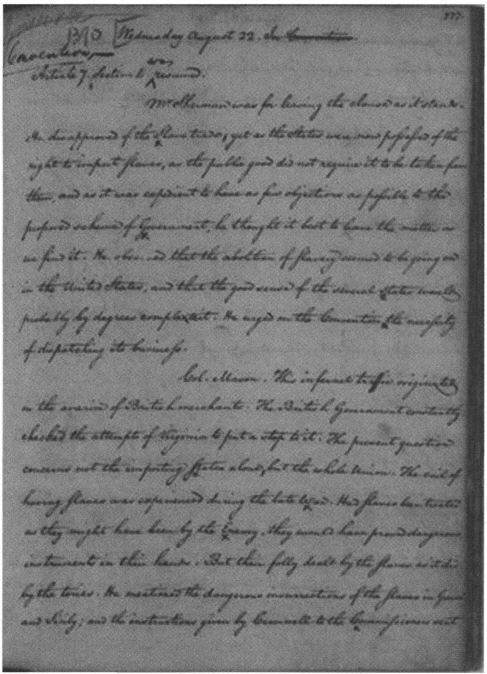 377
Wednesday August 22. In Convention
Convention,
Article 7, Section 4. was resumed.
Mr Sherman was for leaving the clause as it stands.
He disapproved of the slave trade, yet as the States were now possessed of the
right to import slaves, as the public good did not require it to be taken from
them, and as it was expedient to have as few objections as possible to the
proposed scheme of Government, he thought it best to leave the matter as
we find it. He observed that the abolition of slavery seemed to be going on
in the United States, and that the good sense of the several States would
probably by degrees compleat it. He urged on the Convention the necessity
of dispatching its business.
Col. Mason. This infernal traffic originated
in the avarice of British merchants. The British Government constantly
checked the attempts of Virginia to put a stop to it. The present question
concerns not the importing States alone, but the whole Union. The evil of
having slaves was experienced during the late War. Had slaves been treated
as they might have been by the Enemy, they would have proved dangerous
instruments in their hands. But their folly dealt by the slaves as it did
by the tories. He mentioned the dangerous insurrections of the slaves in Greece
and Sicily; and the instructions given by Cromwell to the Commissioners sent